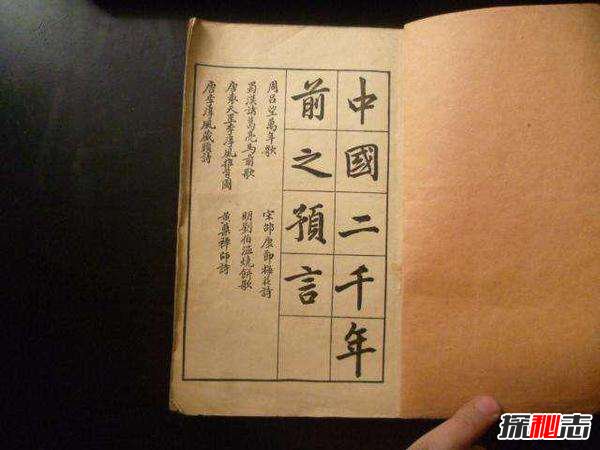 中國二千年
前之預言
周呂望萬年歌
蜀漢諸葛亮馬前歌
唐袁天罡李淳風推背圖
唐李淳風藏頭詩
宋邵康節梅花詩
明劉伯溫燒餅歌
黃蘗禪師詩
探秘志